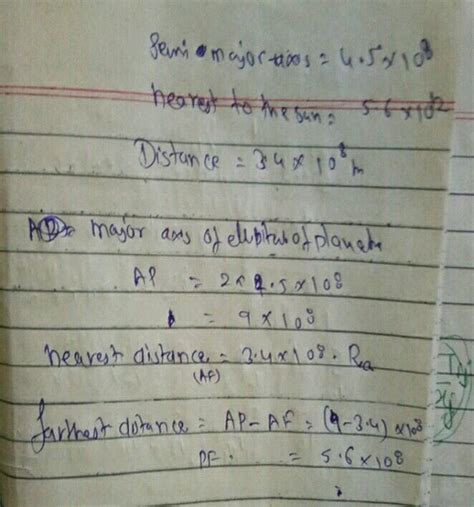 Semi major-axos = 4.5×10⁸
nearest to the sun = 5.6×10¹²
Distance = 3.4×10⁸ m
major axis of of planet
AP = 2×4.5×10⁸
= 9×10⁸
nearest distance = 3.4×10⁸. Ra
(AF)
farthest dotance = AP-AF = (9-3.4)×10⁸
PF. = 5.6×10⁸